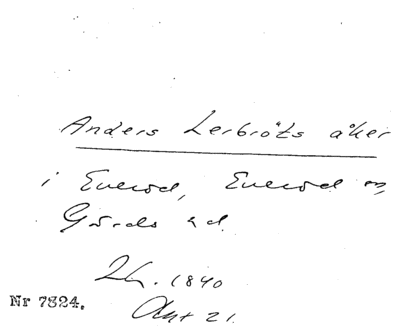 Anders Lerbröts åker
i Everöd, Everöd sn,
Gärds hd.
Lh. 1840
Akt 21.
Nr 7324.